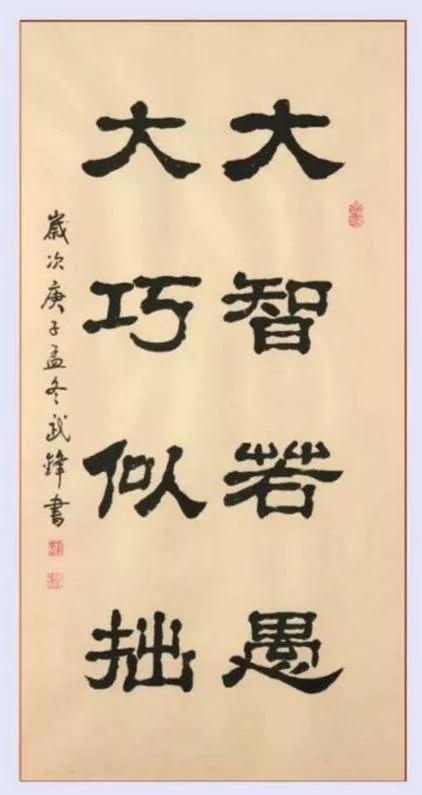 大智若愚
大巧似拙
歲次庚子孟冬武鋒書